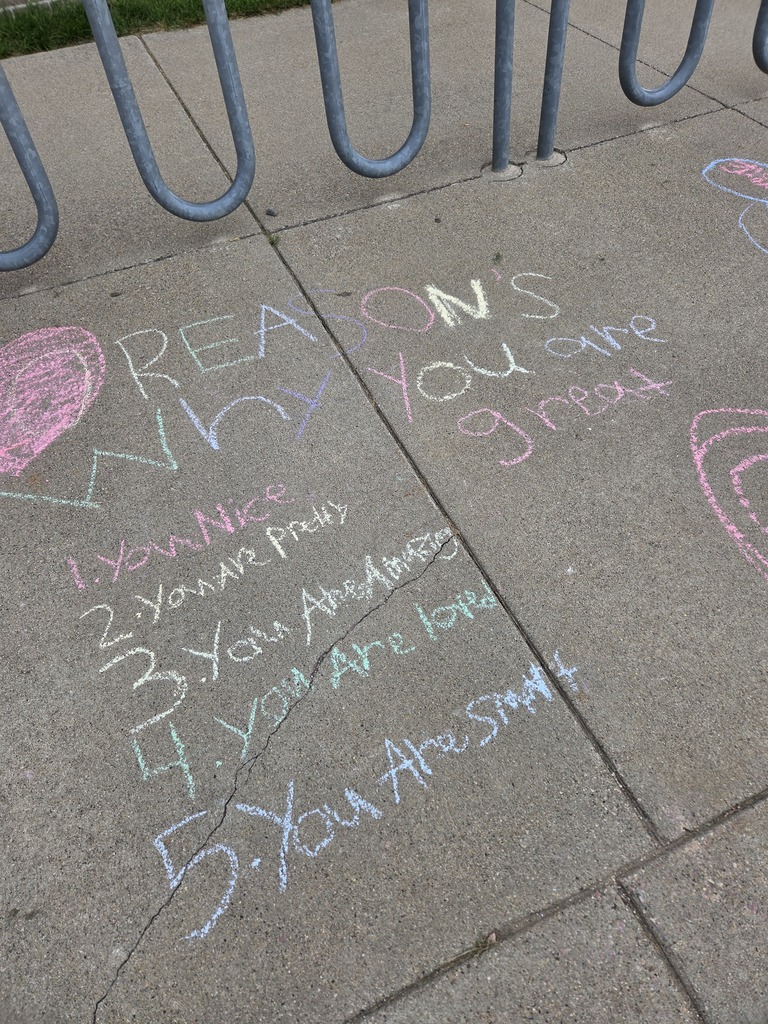 REASON'S
Why You are
great
1. You Nice
2. You Are Pretty
3. You Are Amazing
4. You Are loved
5. You Are Smart